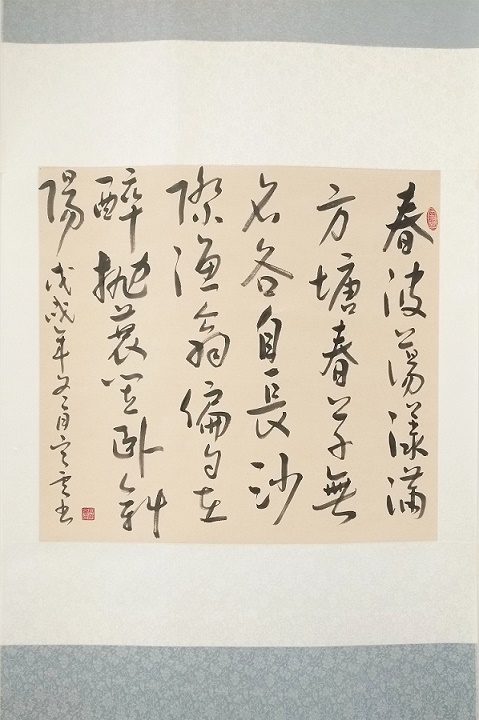 春波蕩漾滿
方塘春草無
名各自長沙
際漁翁偏自在
醉拋蓑笠臥斜
陽 戊戌年冬月 書